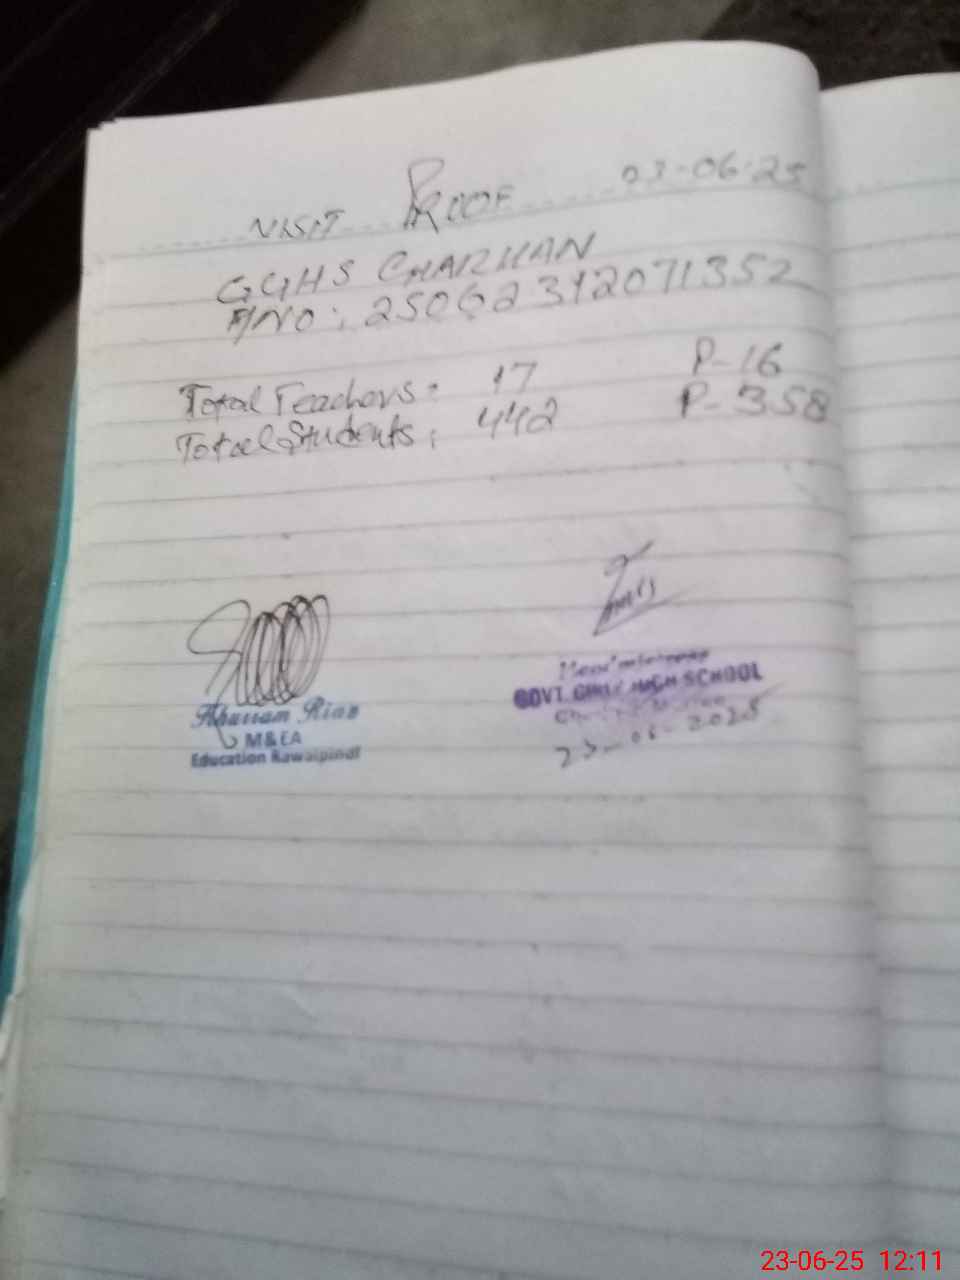 VISIT PROOF 23-06-25
GGHS CHARHAN
A/NO: 25062312071352
Total Teachers: 17 P-16
Total Students: 442 P-358
Khurram Riaz
M&EA
Education Rawalpindi
Headmistress
GOVT. GIRLS HIGH SCHOOL
23-06-2025
23-06-25 12:11